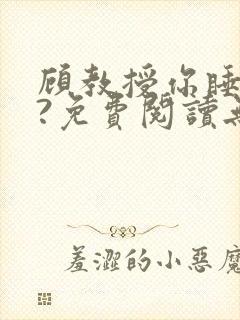 顾教授你睡
?免費閱讀無
羞澀的小惡魔